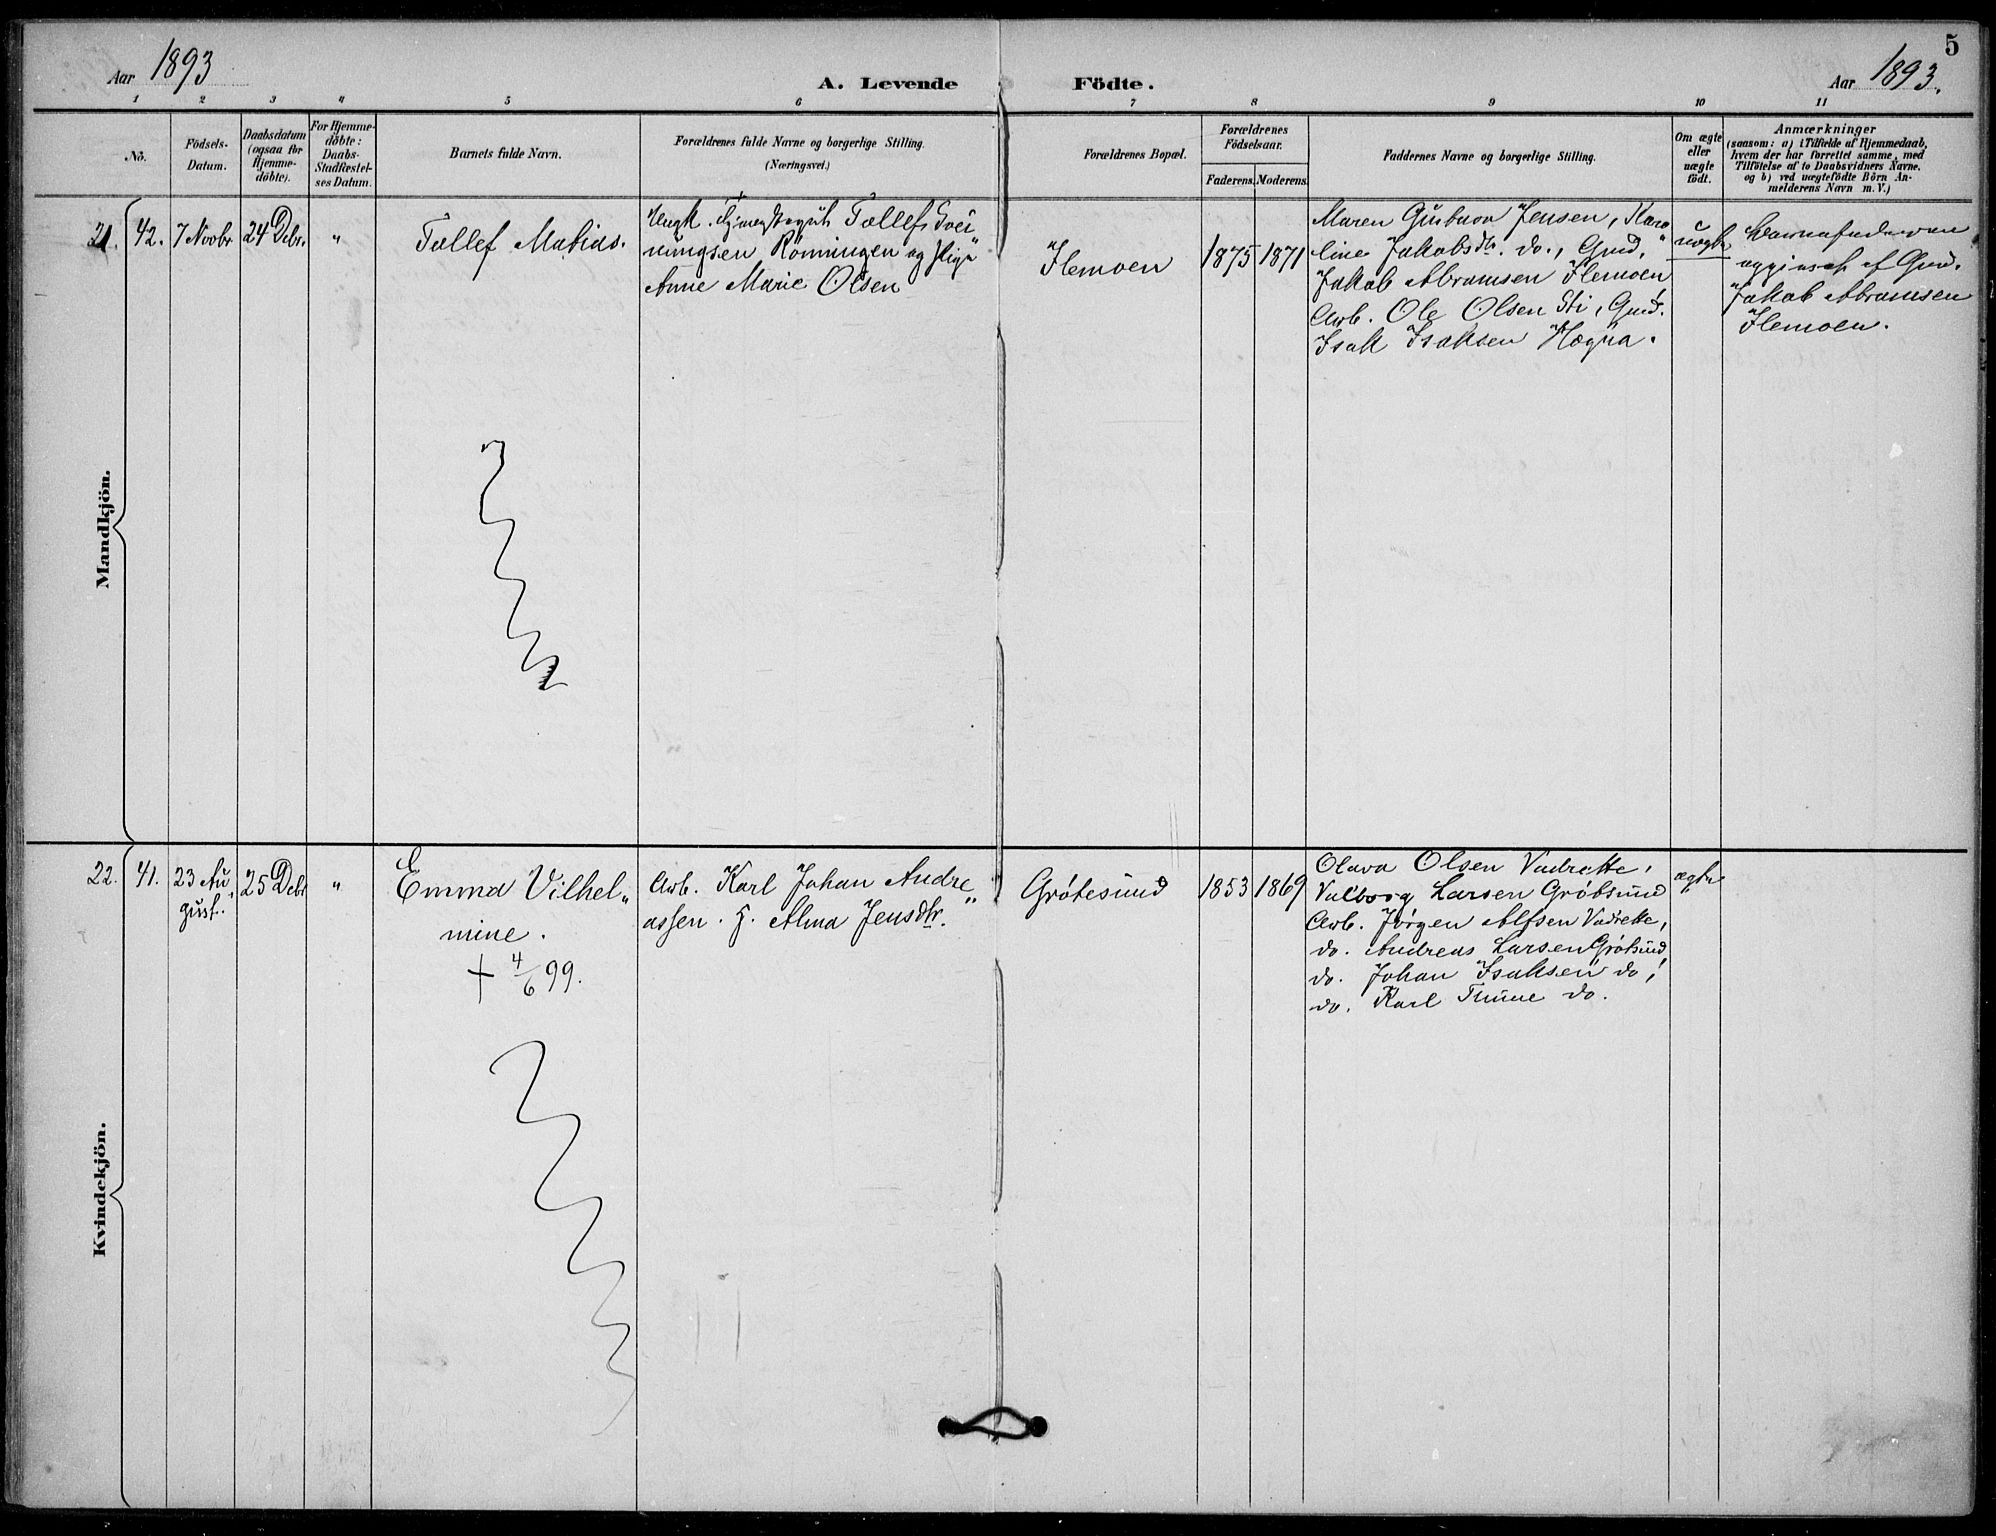 5
Aar 1893
A. Levende Födte.
Aar 1893.
1 2 3 4 5 6 7 8 9 10 11
No.
Födsels-
Datum.
Daabsdatum
(ogsaa for
Hjemme-
döbte).
For Hjemme-
döbte:
Daabs-
Stadfæstel-
ses Datum.
Barnets fulde Navn.
Forældrenes fulde Navne og borgerlige Stilling.
(Næringsvei.)
Forældrenes Bopæl.
Forældrenes
Födselsaar.
Faderens. Moderens.
Faddernes Navne og borgerlige Stilling.
Om ægte
eller
uægte
födt.
Anmærkninger
(saasom: a) i Tilfælde af Hjemmedaab,
hvem der har forrettet samme, med
Tilföielse af to Daabsvidners Navne.
og b) ved uægtefödte Börn An-
melderens Navn m. V.)
Mandkjön.
21. 42. 7 Novbr 24 Debr. "
Tallef Matias.
Ungk. Tallef Svei
nungsen Rönningen og Pige
Anne Marie Olsen
Flemoen
1875 1871
Maren Gustava Jensen, Karo
line Jakobsdtr. do., Gmd.
Jakob Abramsen Flemoen
Arb. Ole Olsen Sti, Gmd.
Isak Isaksen Hægna.
uægte
Barnefaderen
opgivet af Gmd.
Jakob Abramsen
Flemoen.
Kvindekjön.
22. 41. 23 Au
gust. 25 Debr "
Emma Vilhel
mine.
+ 4/6 99.
Arb. Karl Johan Andre
assen. H. Alma Jensdtr.
Grøtesund
1853 1869
Olava Olsen Vadrette,
Valborg Larsen Grøtsund
Arb. Jørgen Alfsen Vadrette,
do. Andreas Larsen Grøtsund,
do. Johan Isaksen do,
do. Karl Thune do.
ægte